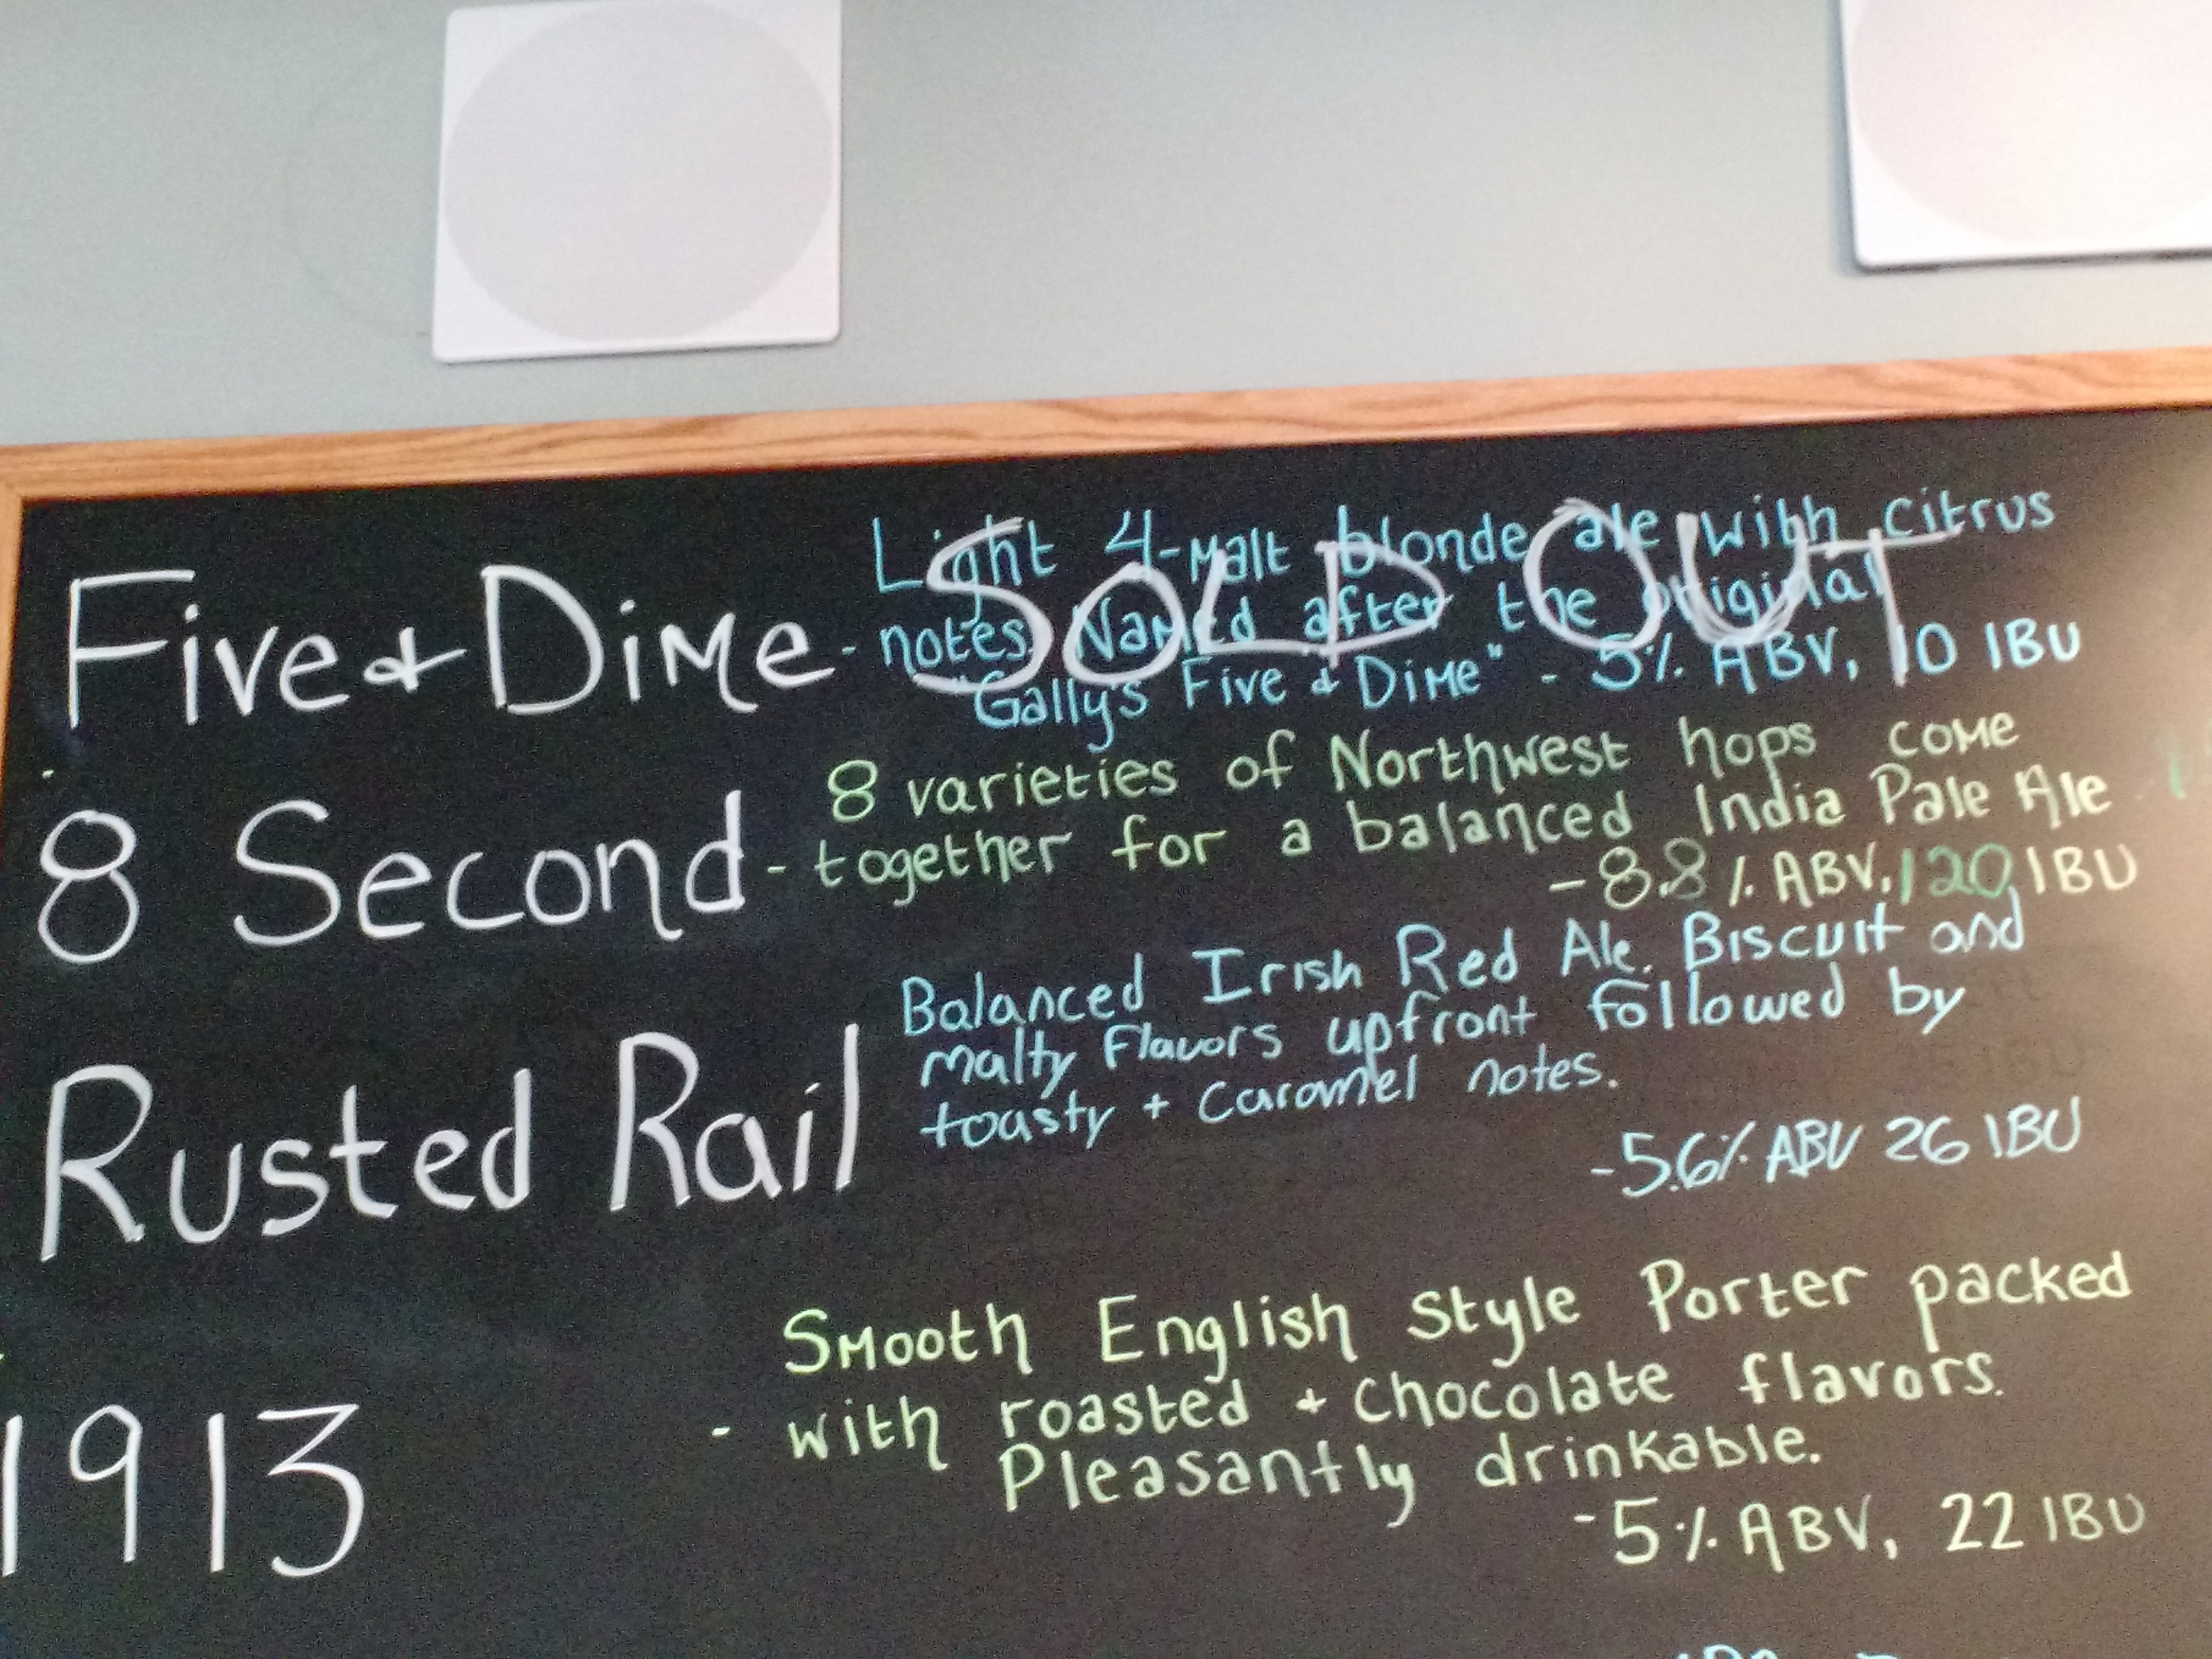 Five & Dime -
Light 4-Malt blonde ale with citrus
notes. Named after the original
"Gally's Five & Dime" - 5% ABV, 10 IBU
SOLD OUT
8 Second -
8 varieties of Northwest hops come
together for a balanced India Pale Ale
- 8.8% ABV, 120 IBU
Rusted Rail
Balanced Irish Red Ale. Biscuit and
malty Flavors upfront followed by
toasty + Caramel notes.
- 5.6% ABV 26 IBU
1913 -
Smooth English Style Porter packed
with roasted + Chocolate flavors.
Pleasantly drinkable.
- 5% ABV, 22 IBU